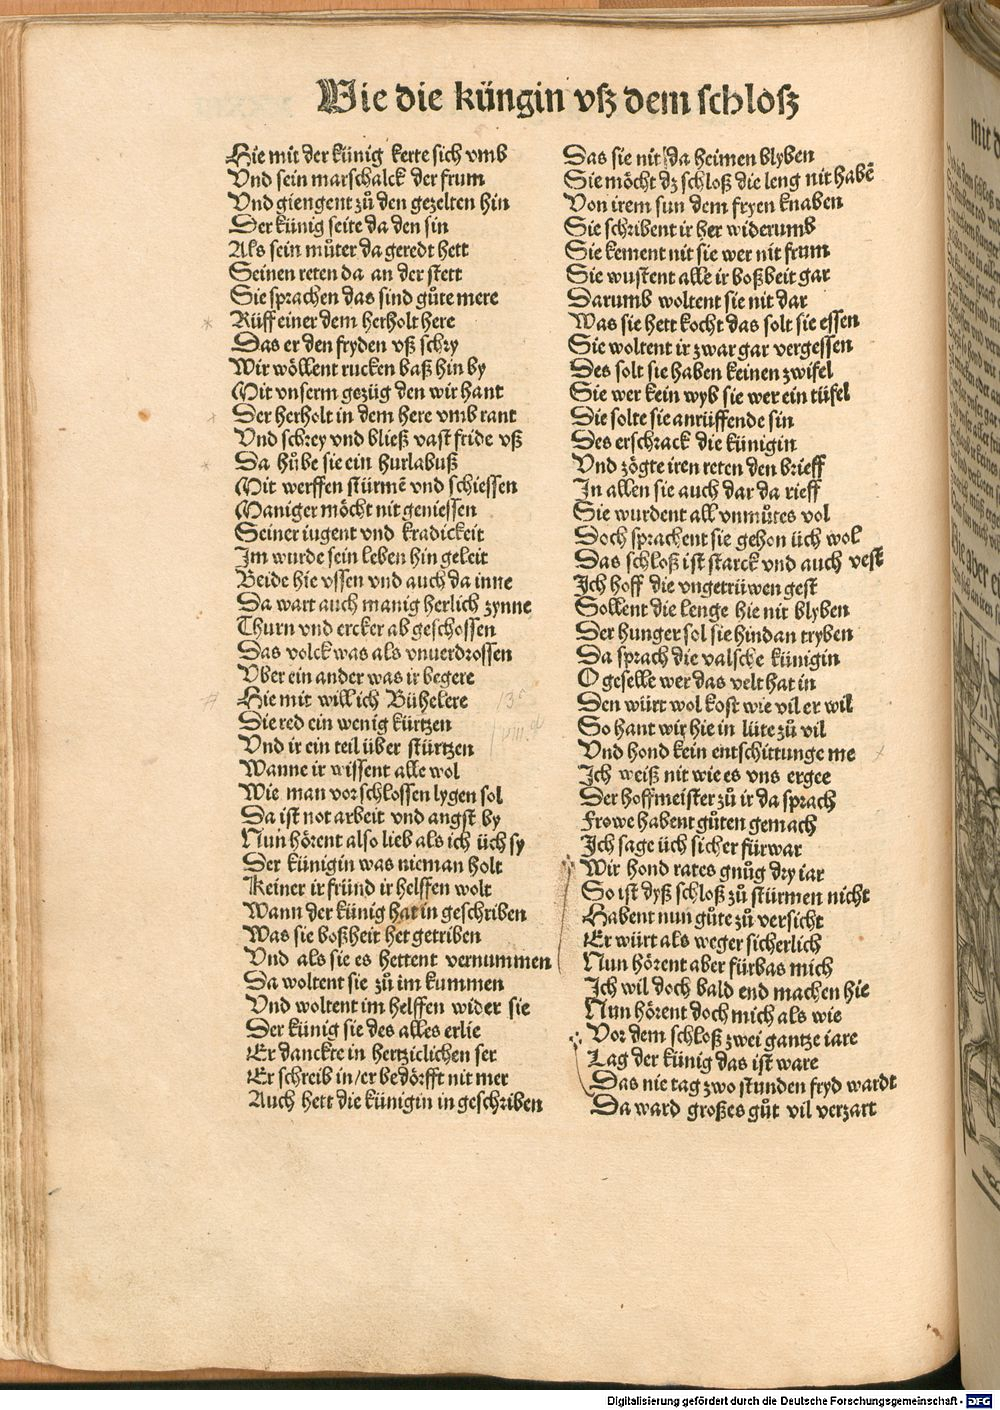 Wie die küngin vß dem schloß
Hie mit der künig kerte sich vmb
Vnd sein marschalck der frum
Vnd giengent zů den gezelten hin
Der künig seite da den sin
Als sein můter da geredt hett
Seinen reten da an der stett
Sie sprachen das sind gůte mere
Rüff einer dem herholt here
Das er den fryden vß schry
Wir wöllent rucken baß hin by
Mit vnserm gezüg den wir hant
Der herholt in dem here vmb rant
Vnd schrey vnd bließ vast fride vß
Da hůbe sie ein hurlabuß
Mit werffen stürmē vnd schiessen
Maniger möcht nit geniessen
Seiner iugent vnd kradickeit
Im wurde sein leben hin geleit
Beide hie vssen vnd auch da inne
Da wart auch manig herlich zynne
Thurn vnd ercker ab geschossen
Das volck was als vnuerdrossen
Vber ein ander was ir begere
Hie mit will ich Bühelere
Die red ein wenig kürtzen
Vnd ir ein teil über stürtzen
Wanne ir wissent alle wol
Wie man vor schlossen lygen sol
Da ist not arbeit vnd angst by
Nun hörent also lieb als ich üch sy
Der künigin was nieman holt
Keiner ir fründ ir helffen wolt
Wann der künig hat in geschriben
Was sie boßheit het getriben
Vnd als sie es hettent vernummen
Da woltent sie zů im kummen
Vnd woltent im helffen wider sie
Der künig sie des alles erlie
Er danckte in hertziclichen ser
Er schreib in/er bedörfft nit mer
Auch hett die künigin in geschriben
Das sie nit da heimen blyben
Sie möcht dz schloß die leng nit habē
Von irem sun dem fryen knaben
Sie schribent ir her widerumb
Sie kement nit sie wer nit frum
Sie wustent alle ir boßheit gar
Darumb woltent sie nit dar
Was sie hett kocht das solt sie essen
Sie woltent ir zwar gar vergessen
Des solt sie haben keinen zwifel
Sie wer kein wyb sie wer ein tüfel
Die solte sie anrüffende sin
Des erschrack die künigin
Vnd zögte iren reten den brieff
In allen sie auch dar da rieff
Sie wurdent all vnmůtes vol
Doch sprachent sie gehon üch wol
Das schloß ist starck vnd auch vest
Ich hoff die vngetrüwen gest
Sollent die lenge hie nit blyben
Der hunger sol sie hindan tryben
Da sprach die valsche künigin
O geselle wer das velt hat in
Den würt wol kost wie vil er wil
So hant wir hie in lüte zů vil
Vnd hond kein entschittunge me
Ich weiß nit wie es vns ergee
Der hoffmeister zů ir da sprach
Frowe habent gůten gemach
Ich sage üch sicher fürwar
Wir hond rates gnůg dry iar
So ist dyß schloß zů stürmen nicht
Habent nun gůte zů versicht
Er würt als weger sicherlich
Nun hörent aber fürbas mich
Ich wil doch bald end machen hie
Nun hörent doch mich als wie
Vor dem schloß zwei gantze iare
Lag der künig das ist ware
Das nie tag zwo stunden fryd wardt
Da ward großes gůt vil verzart
Digitalisierung gefördert durch die Deutsche Forschungsgemeinschaft - DFG